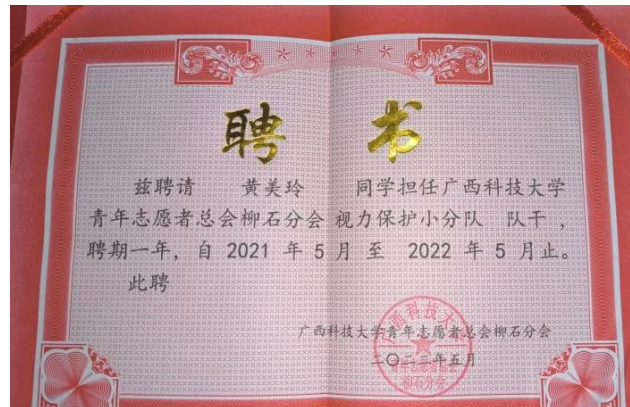 聘 书
兹聘请 黄美玲 同学担任广西科技大学
青年志愿者总会柳石分会 视力保护小分队 队干，
聘期一年，自 2021 年 5 月 至 2022 年 5 月止。
此聘
广西科技大学青年志愿者总会柳石分会
二〇二二年五月
青年志愿者总会
柳石分会